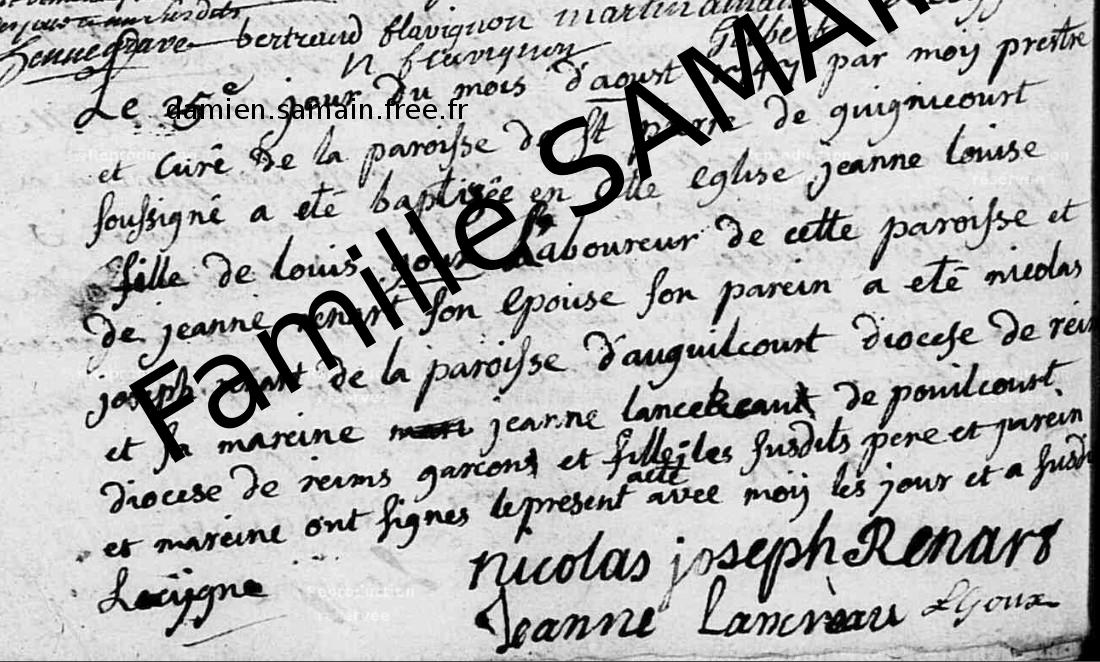 bertraud flavignon martin
n flavignon gilbert
Le 25e jour du mois d'aoust par moy prestre
damien.samain.free.fr
et curé de la paroisse de St pierre de guignicourt
soussigné a eté baptisée en cette eglise jeanne louise
fille de louis laboureur de cette paroisse et
de jeanne renart son epouse son parein a eté nicolas
joseph renart de la paroisse d'auguilcourt diocese de reims
et sa mareine jeanne de pouilcourt
diocese de reims garcons et filles les susdits pere et parein
et mareine ont signes le present acte avec moy les jour et a susdi
Lecuygne
nicolas joseph Renars
Jeanne Lancreau LGoux
Famille SAMA